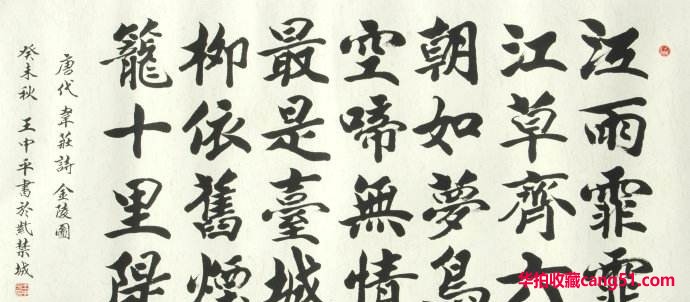 江雨霏霏
江草齊六
朝如夢鳥
空啼無情
最是臺城
柳依舊煙
籠十里隄
唐代 韋莊詩 金陵圖
癸未秋 王中平書於禁城
华拍收藏cang51.com